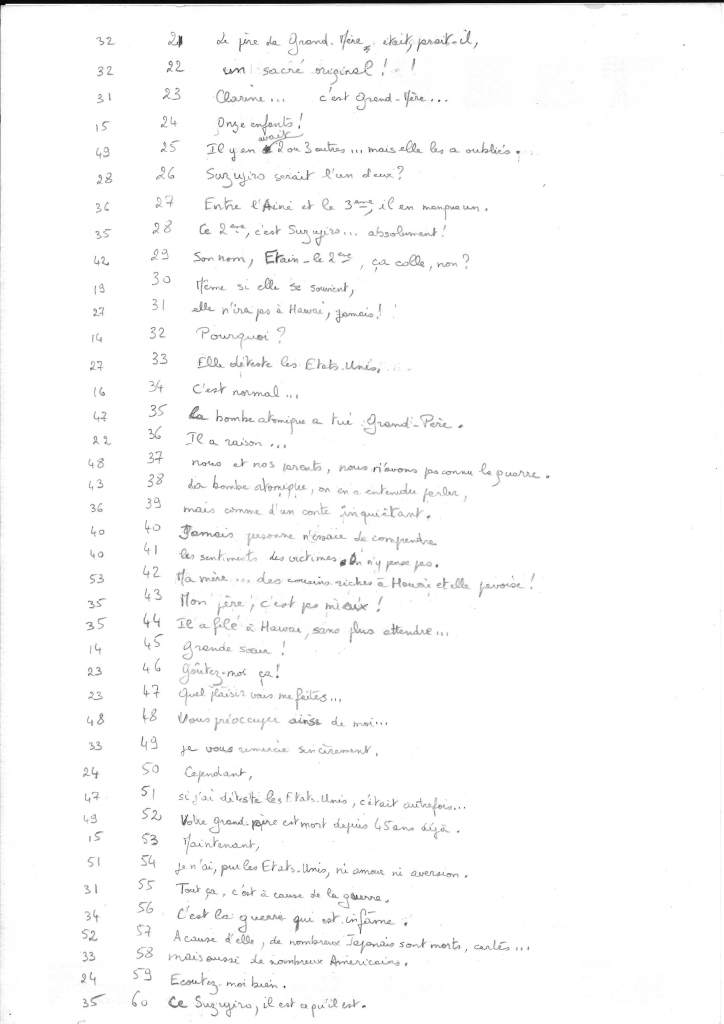 32 21 Le père de Grand-Mère, était, paraît-il,
32 22 un sacré original !
31 23 Clarine... c'est Grand-Mère...
15 24 Onze enfants !
49 25 Il y en avait 2 ou 3 autres... mais elle les a oubliés.
28 26 Suzujiro serait l'un deux ?
36 27 Entre l'Ainé et le 3ème, il en manque un.
35 28 Ce 2ème, c'est Suzujiro... absolument !
42 29 Son nom, Etain-le 2ème, ça colle, non ?
19 30 Même si elle se souvient,
27 31 elle n'ira pas à Hawaï, jamais !
14 32 Pourquoi ?
27 33 Elle déteste les Etats-Unis.
16 34 C'est normal...
47 35 La bombe atomique a tué Grand-Père.
22 36 Il a raison...
48 37 nous et nos parents, nous n'avons pas connu la guerre.
43 38 La bombe atomique, on en a entendu parler,
36 39 mais comme d'un conte inquiétant.
40 40 Jamais personne n'essaie de comprendre
40 41 les sentiments des victimes. On n'y pense pas.
53 42 Ma mère... des cousins riches à Hawaï et elle pavoise !
35 43 Mon père, c'est pas mieux !
35 44 Il a filé à Hawaï, sans plus attendre...
14 45 Grande soeur !
23 46 Goûtez-moi ça !
23 47 Quel plaisir vous me faites...
48 48 Vous préoccuper ainsi de moi...
33 49 je vous remercie sincèrement.
24 50 Cependant,
47 51 si j'ai détesté les Etats-Unis, c'était autrefois...
49 52 Votre grand-père est mort depuis 45 ans déjà.
15 53 Maintenant,
51 54 je n'ai, pour les Etats-Unis, ni amour ni aversion.
31 55 Tout ça, c'est à cause de la guerre.
34 56 C'est la guerre qui est infâme.
52 57 A cause d'elle, de nombreux Japonais sont morts, certes...
33 58 mais aussi de nombreux Américains.
24 59 Ecoutez-moi bien.
35 60 Ce Suzujiro, il est ce qu'il est.